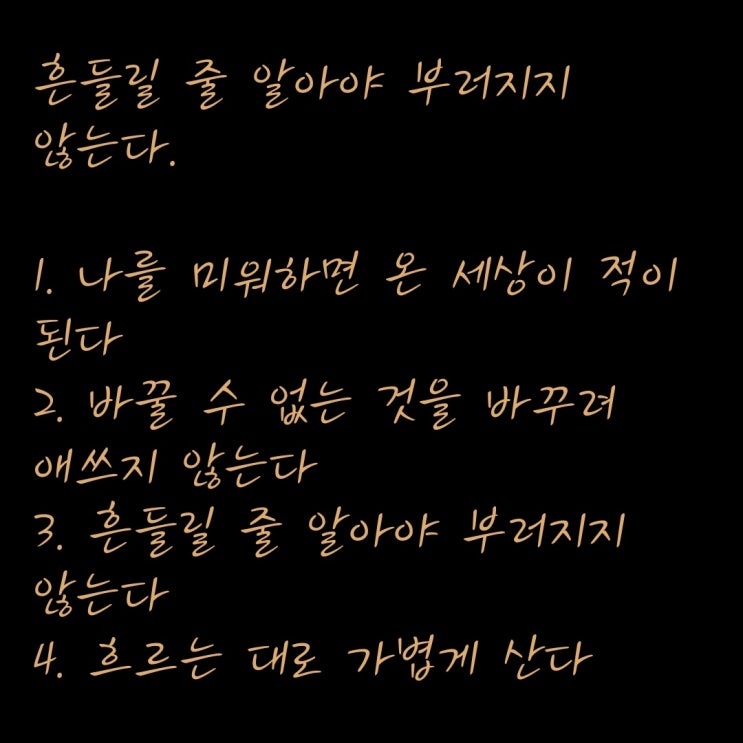 흔들릴 줄 알아야 부러지지
않는다.
1. 나를 미워하면 온 세상이 적이
된다
2. 바꿀 수 없는 것을 바꾸려
애쓰지 않는다
3. 흔들릴 줄 알아야 부러지지
않는다
4. 흐르는 대로 가볍게 산다